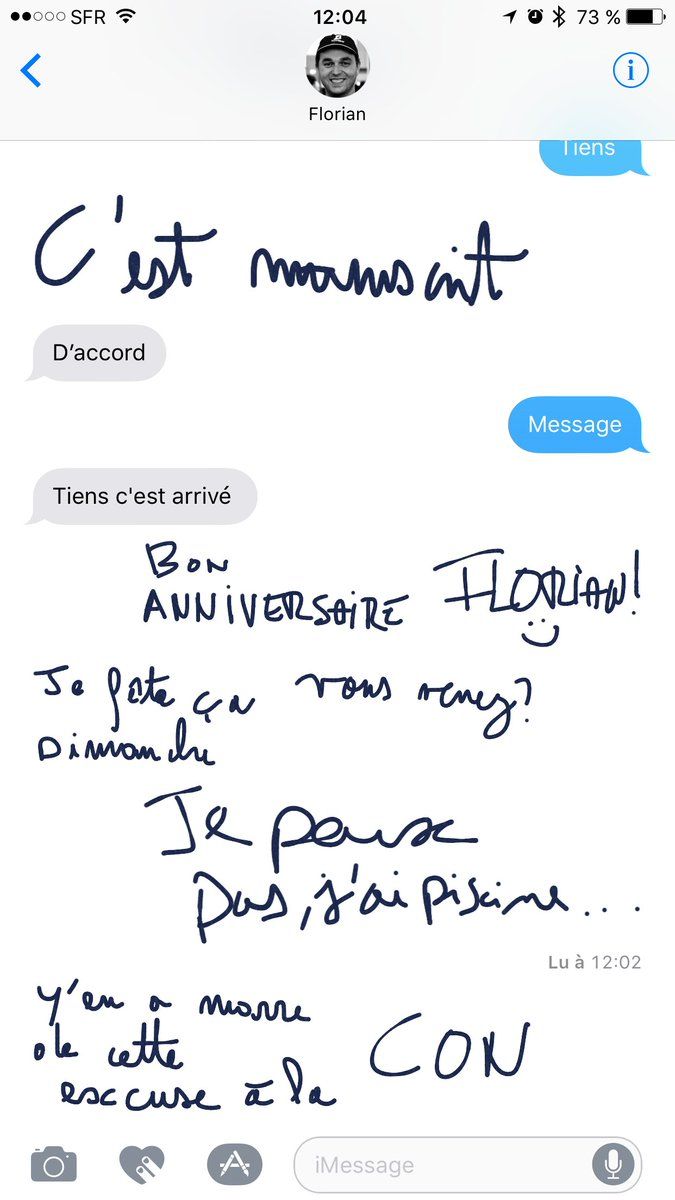 SFR 12:04 73 %
Florian
Tiens
C'est manuscrit
D'accord
Message
Tiens c'est arrivé
BON
ANNIVERSAIRE FLORIAN!
Je fête ça vous venez?
Dimanche
Je peux
pas, j'ai piscine...
Lu à 12:02
Y'en a marre
de cette
excuse à la CON
iMessage